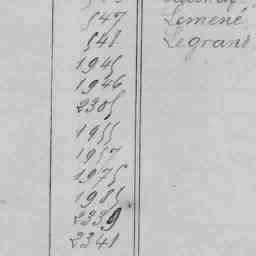 547 Lemené
548 Legrand
1945
1946
2305
1955
1957
1975
1985
2339
2341